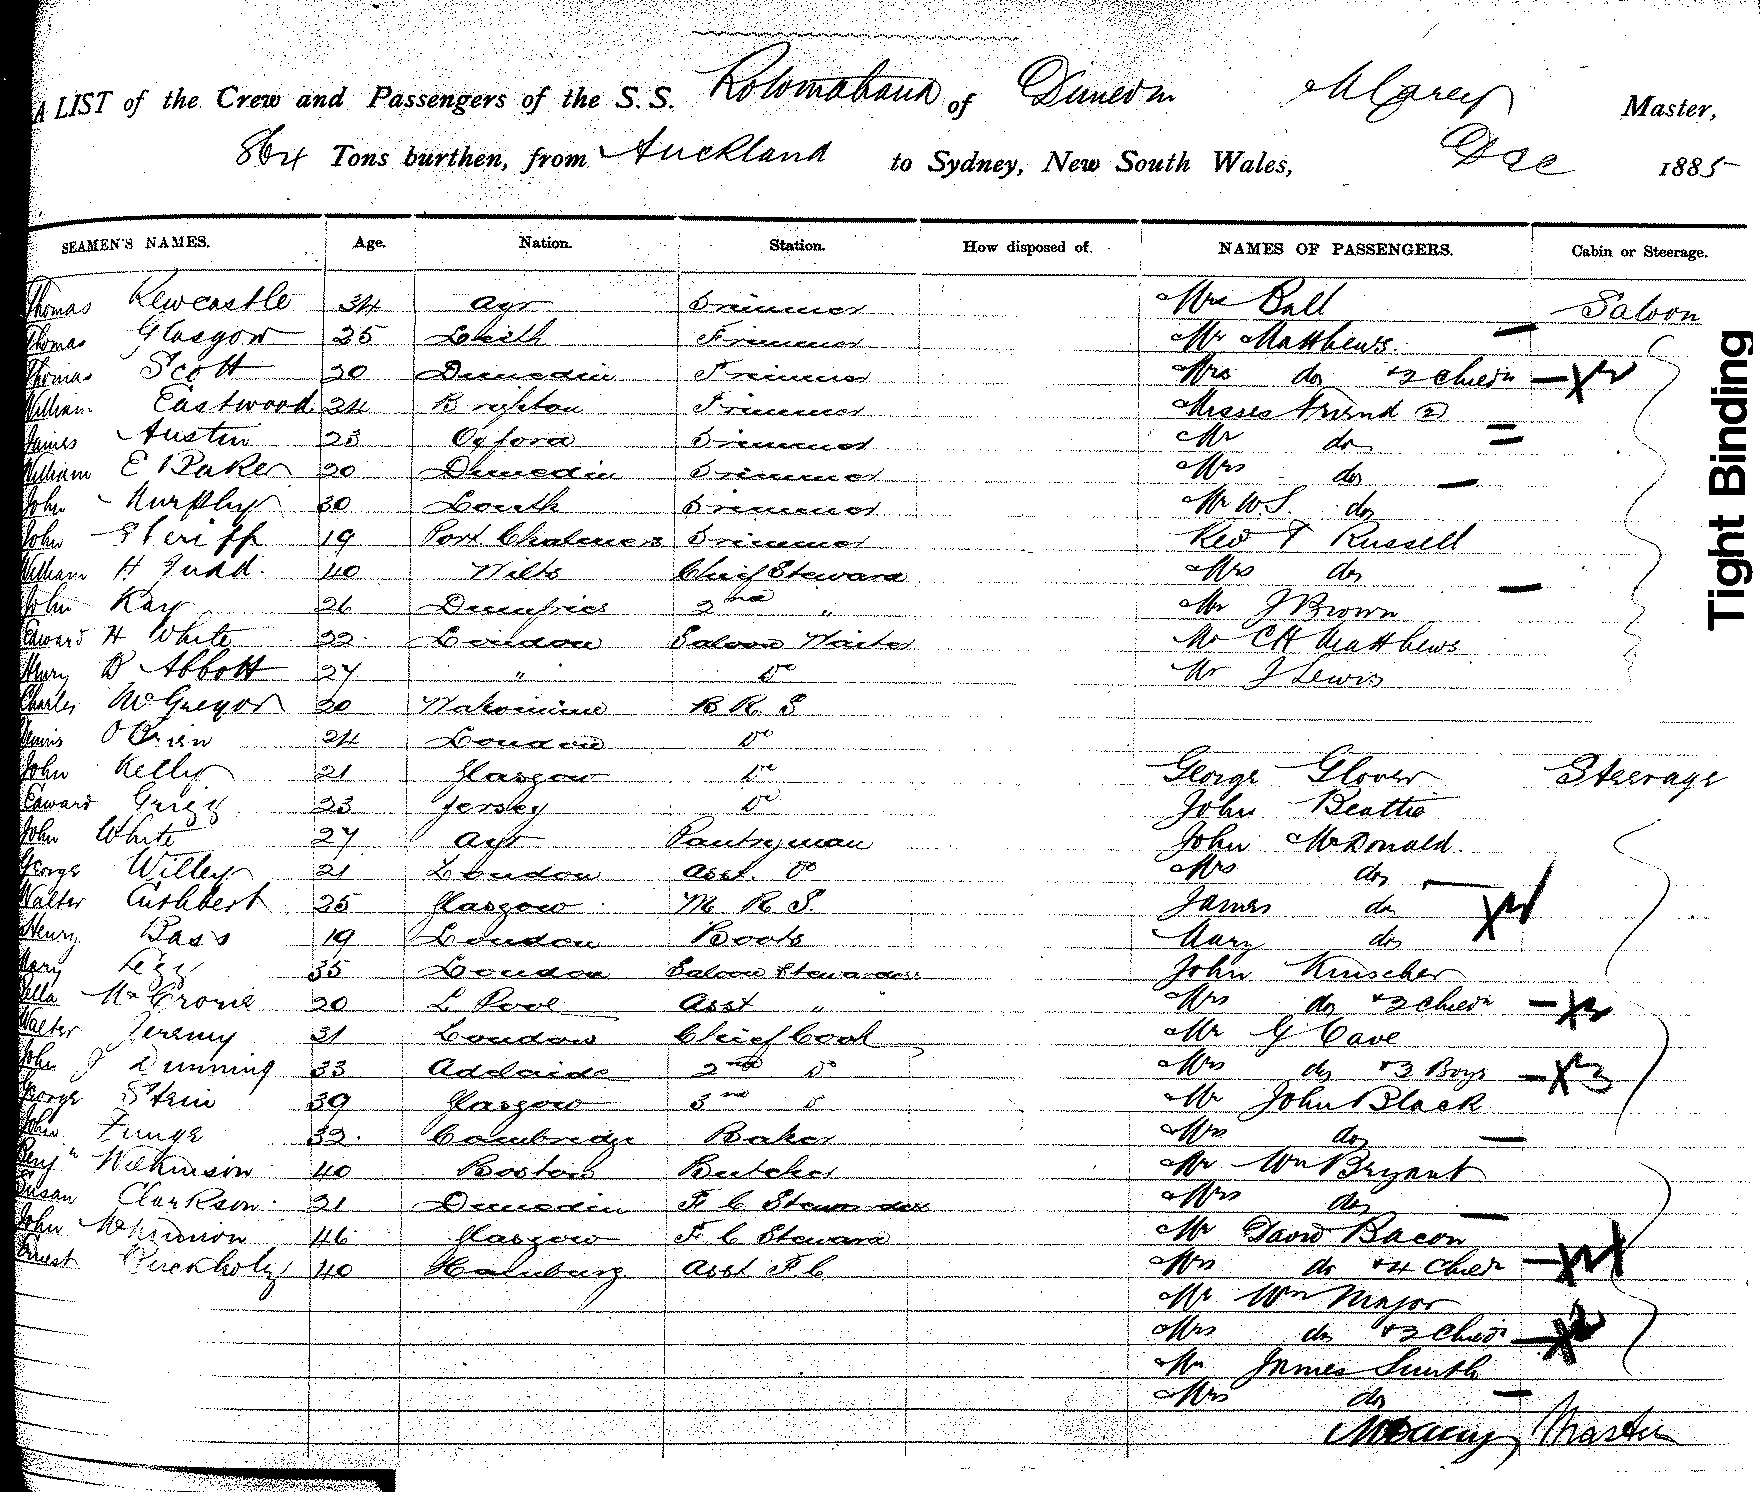 A LIST of the Crew and Passengers of the S.S. Rotomahana of Dunedin M Carey Master,
864 Tons burthen, from Auckland to Sydney, New South Wales, Dec 1885
SEAMEN'S NAMES. Age. Nation. Station. How disposed of. NAMES OF PASSENGERS. Cabin or Steerage.
Thomas Newcastle 34 Ayr Trimmer Mrs Ball Saloon
Thomas Glasgow 25 Leith Trimmer Mr Matthews
Thomas Scott 20 Dunedin Trimmer Mrs do +2 Childn X2
William Eastwood 24 Brighton Trimmer Misses Friend (2)
James Austin 23 Oxford Trimmer Mr do
William E Baker 20 Dunedin Trimmer Mrs do
John Murphy 30 Louth Trimmer Mr W.S. do
John Sheriff 19 Port Chalmers Trimmer Rev T Russell
William H Judd. 40 Wilts Chief Steward Mrs do
John Kay 26 Dumfries 2nd " Mr J Brown
Edward H White 22 London Saloon Waiter Mr CH Matthews
Henry B Abbott 27 " Do Mr J Lewis
Charles McGregor 20 B R S
Dennis O'Brien 24 London Do
John Kelly 21 Glasgow Do George Glover Steerage
Edward Grigg 23 Jersey Do John Beattie
John White 27 Ayr Pantryman John McDonald.
George Willey 21 London Asst. Do Mrs do
Walter Cuthbert 25 Glasgow M R S. James do
Henry Bass 19 London Boots Mary do
Mary Legg 35 London Saloon Stewardess John
Ella McCrone 20 L Pool Asst " Mrs do +2 Childn X2
Walter Jeremy 31 London Chief Cook Mr G Cave
John J Dunning 33 Adelaide 2nd Do Mrs do +3 Boys X3
George Stein 39 Glasgow 3rd Do Mr John Black
John Funge 32 Cambridge Baker Mrs do
Benjn Wilkinson 40 Boston Butcher Mr Wm Bryant
Susan Clarkson 21 Dunedin F C Stewardess Mrs do
John McKinnon 46 Glasgow F C Steward Mr David Bacon
Ernest Buckholz 40 Hamburg Asst F C Mrs do +4 Childn X4
Mr Wm Major
Mrs do +2 Childn X2
Mr James Smith
Mrs do
M Carey Master
Tight Binding